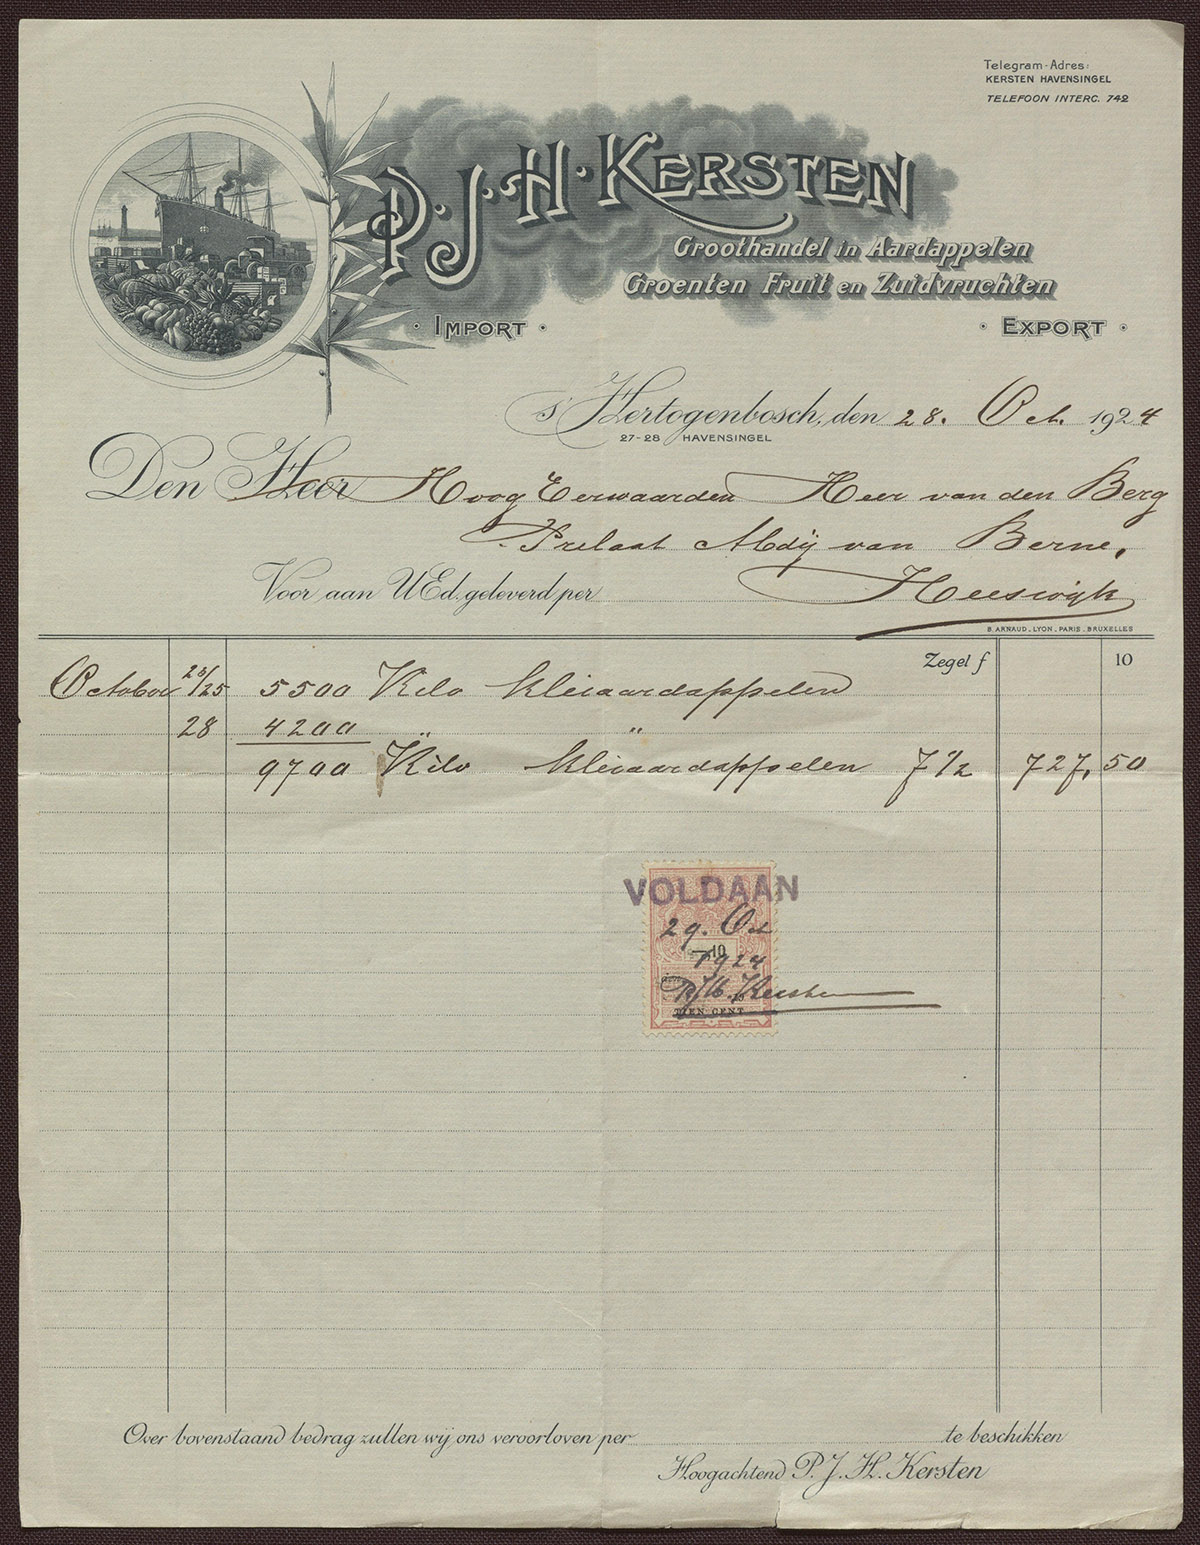 Telegram-Adres:
KERSTEN HAVENSINGEL
TELEFOON INTERC. 742
P. J. H. KERSTEN
Groothandel in Aardappelen
Groenten Fruit en Zuidvruchten
· IMPORT ·
· EXPORT ·
s' Hertogenbosch, den 28. Oct. 1924
27-28 HAVENSINGEL
Den Heer Hoog Eerwaarden Heer van den Berg
Prelaat Abdij van Berne,
Voor aan UEd. geleverd per Heeswijk
B. ARNAUD. LYON. PARIS. BRUXELLES
Zegel f 10
October /25 5500 Kilo kleiaardappelen
28 4200 " "
9700 Kilo kleiaardappelen 7 1/2 727,50
VOLDAAN
29. Oct
10
1924
P.J.H. Kersten
TIEN CENT
Over bovenstaand bedrag zullen wij ons veroorloven per te beschikken
Hoogachtend P. J. H. Kersten